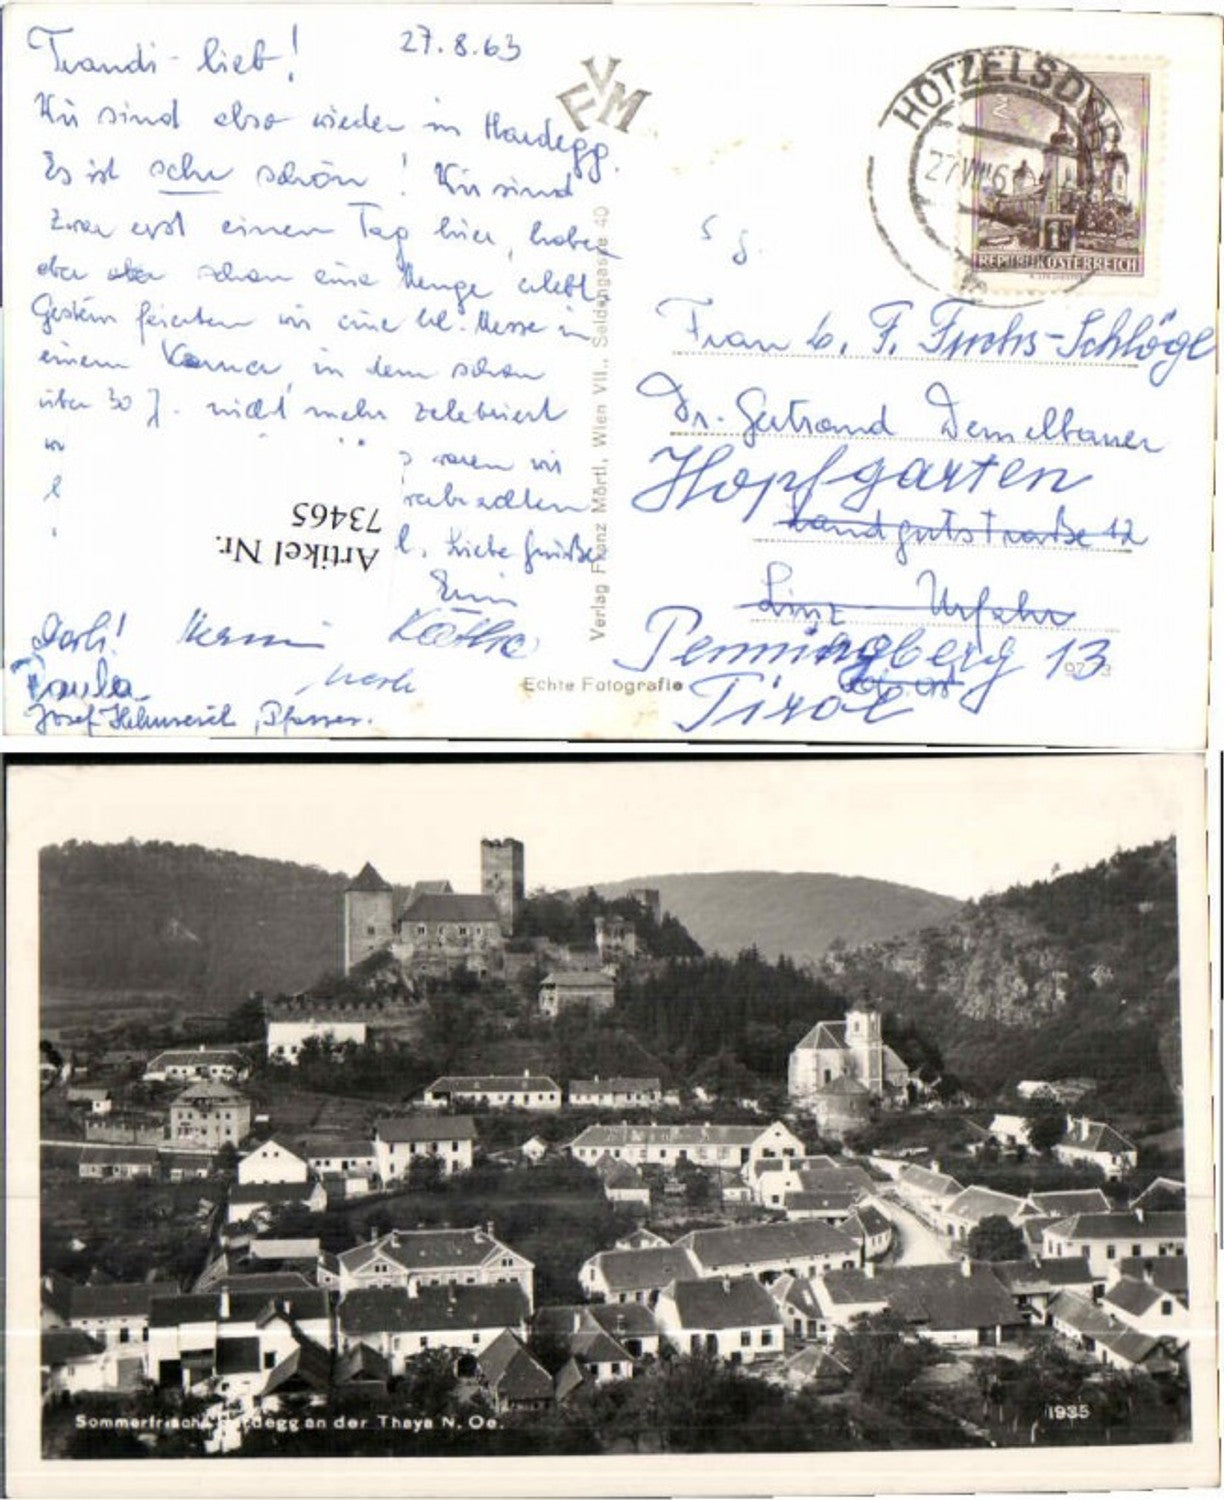 Traudi - lieb!
27.8.63
Wir sind also wieder in Hardegg.
Es ist sehr schön! Wir sind
zwar erst einen Tag hier, haben
aber aber schon eine Menge erlebt.
Gestern feierten wir eine hl. Messe in
einem Karner, in dem schon
über 30 J. nicht mehr zelebriert
waren wir
Liebe Grüße
Käthe
Paula
Pfarrer.
Artikel Nr.
73465
VFM
Verlag Franz Mörtl, Wien VII., Seidengasse 40
Echte Fotografie
HÖTZELSDORF
27 VIII 6
1S
REPUBLIK ÖSTERREICH
Frau b. F. Fuchs-Schlögl
Dr. Gertraud Demelbauer
Hopfgarten
Landgutstraße 12
Linz - Urfahr
Penningberg 13
Tirol
Sommerfrische Hardegg an der Thaya N. Oe.
1935